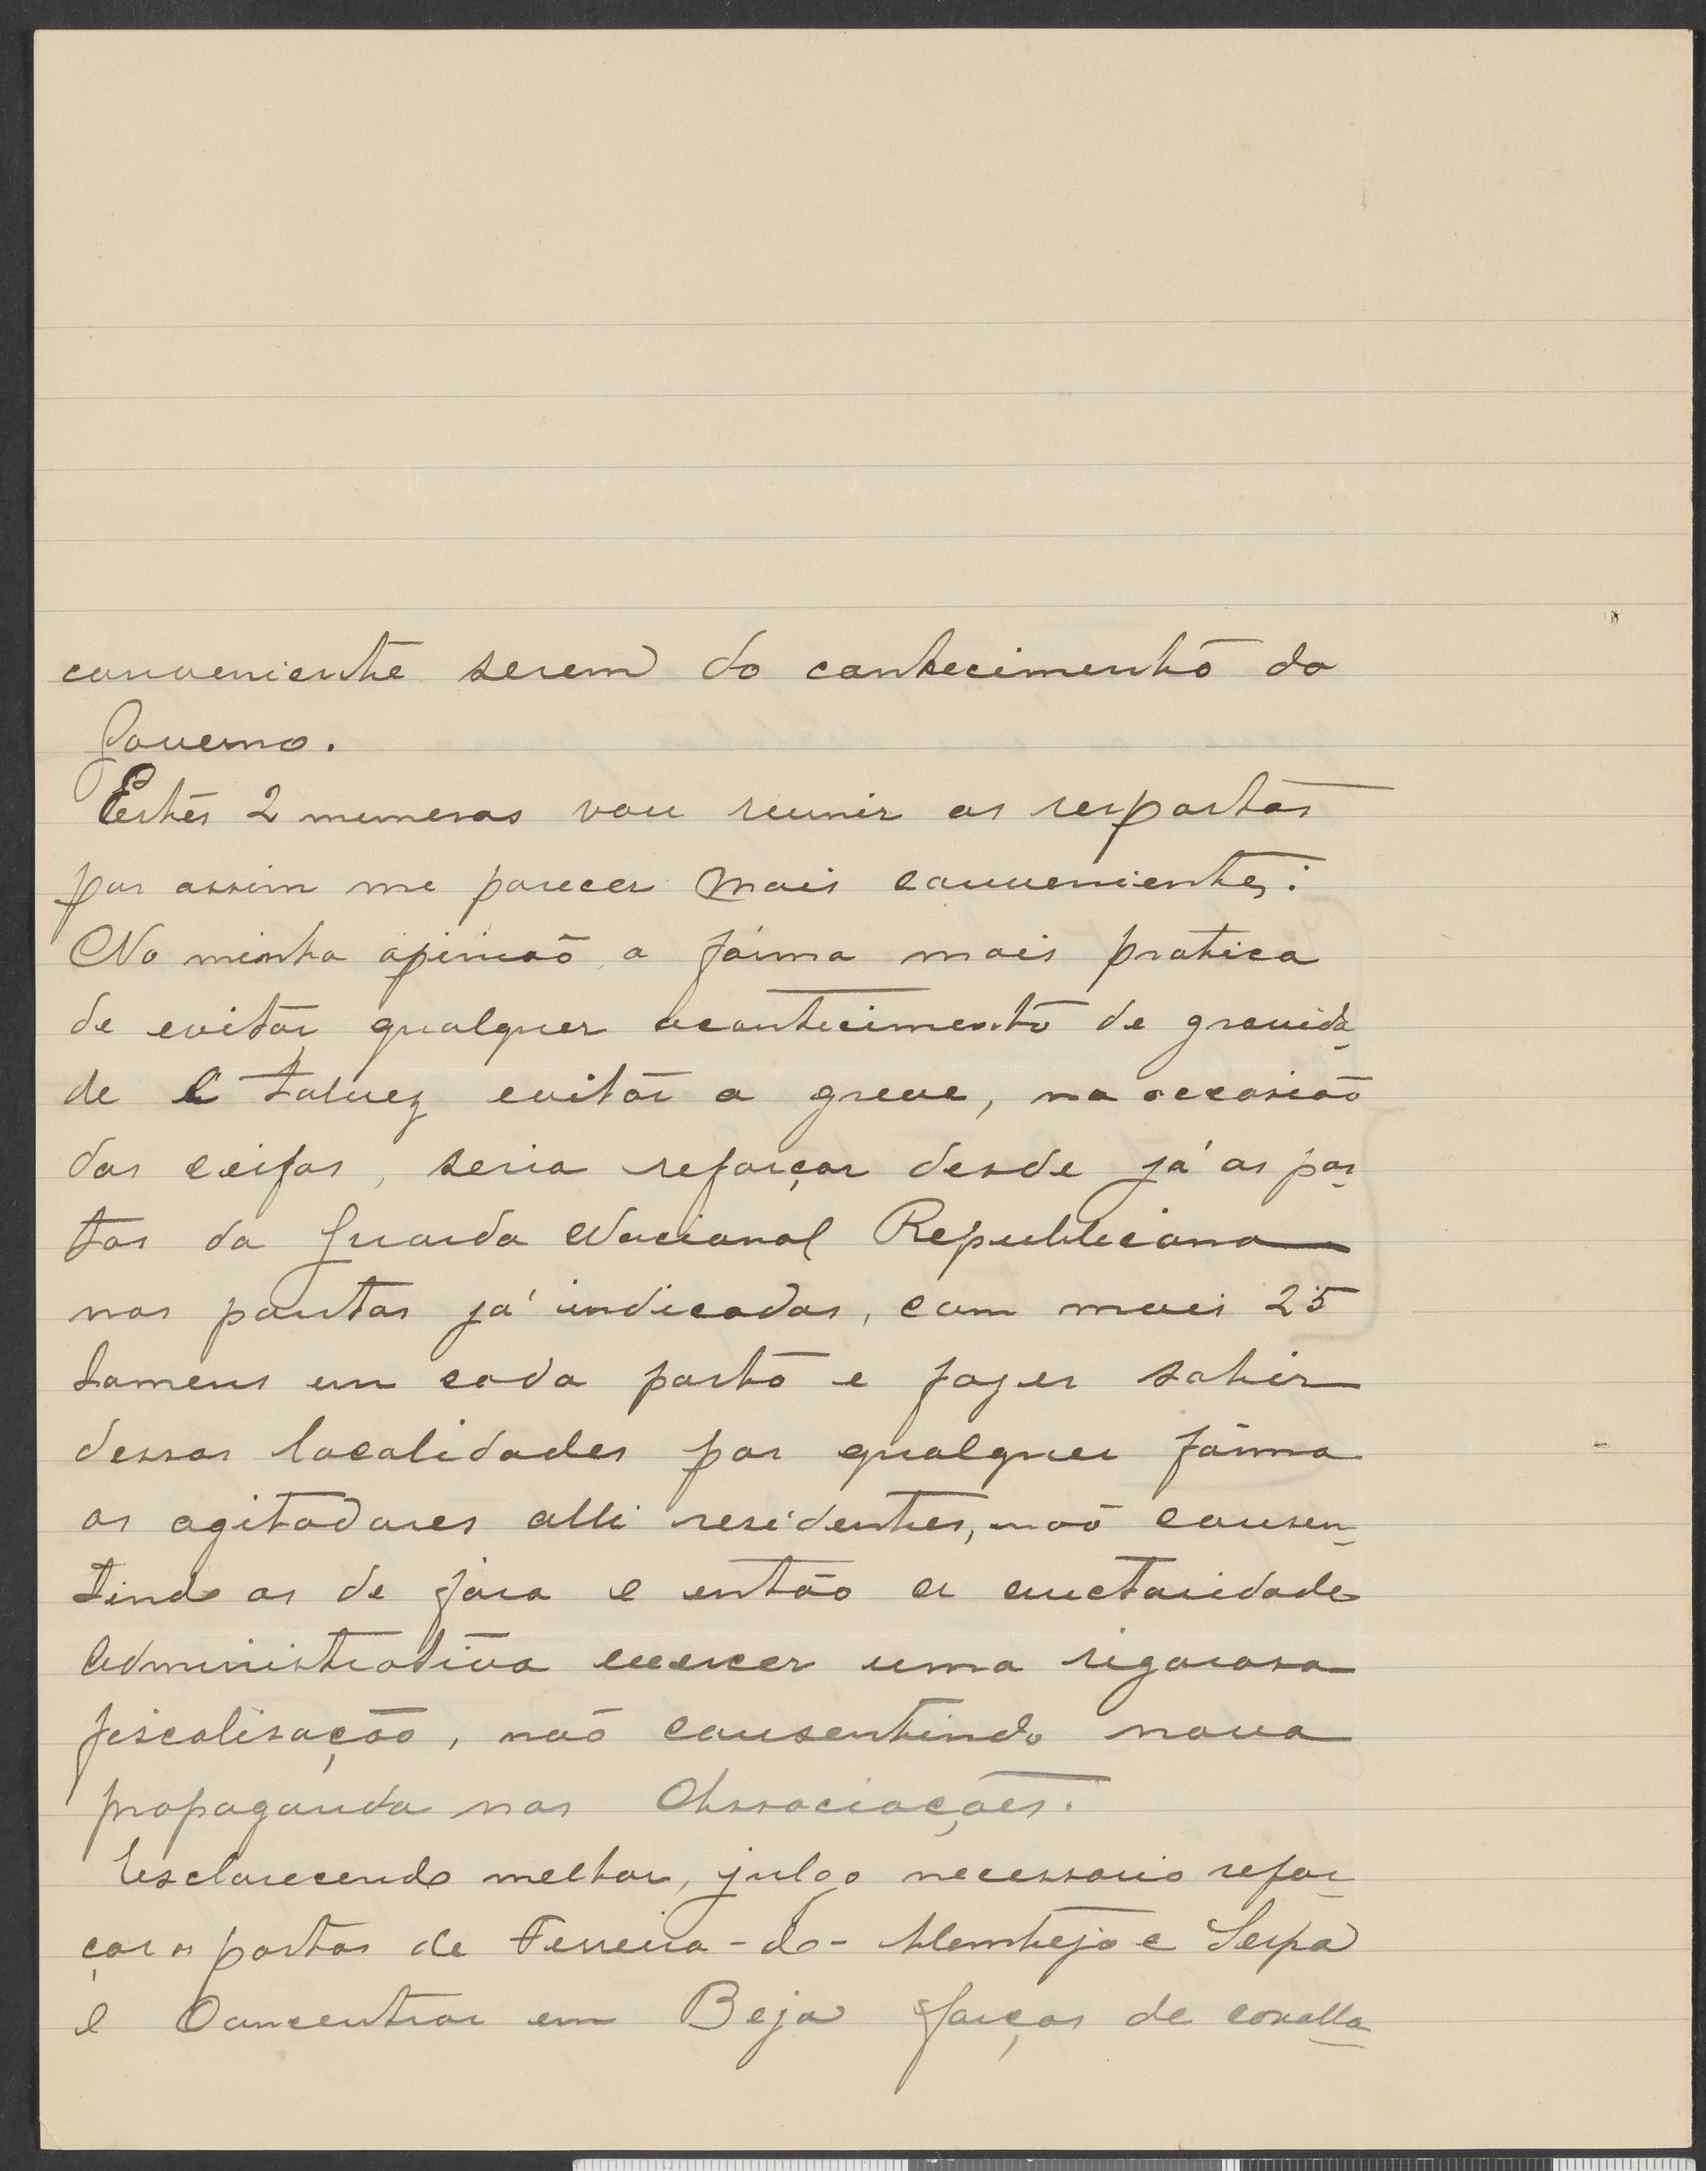 conveniente serem do conhecimento do
Governo.
Estes 2 numeros vou reunir as respostas
por assim me parecer mais conveniente:
Na minha opinião a fórma mais pratica
de evitar qualquer acontecimento de gravida_
de e talvez evitar a greve, na occasião
das ceifas, seria reforçar desde já os pos_
tos da Guarda Nacional Republicana
nos pontos já indicados, com mais 25
homens em cada posto e fazer sahir
dessas localidades por qualquer fórma
os agitadores alli residentes, não consen_
tindo os de fóra e então a auctoridade
administrativa exercer uma rigorosa
fiscalisação, não consentindo nova
propaganda nas Associações.
Esclarecendo melhor, julgo necessario refor_
çar os postos de Ferreira-do-Alemtejo e Serpa
e concentrar em Beja forças de cavalla_